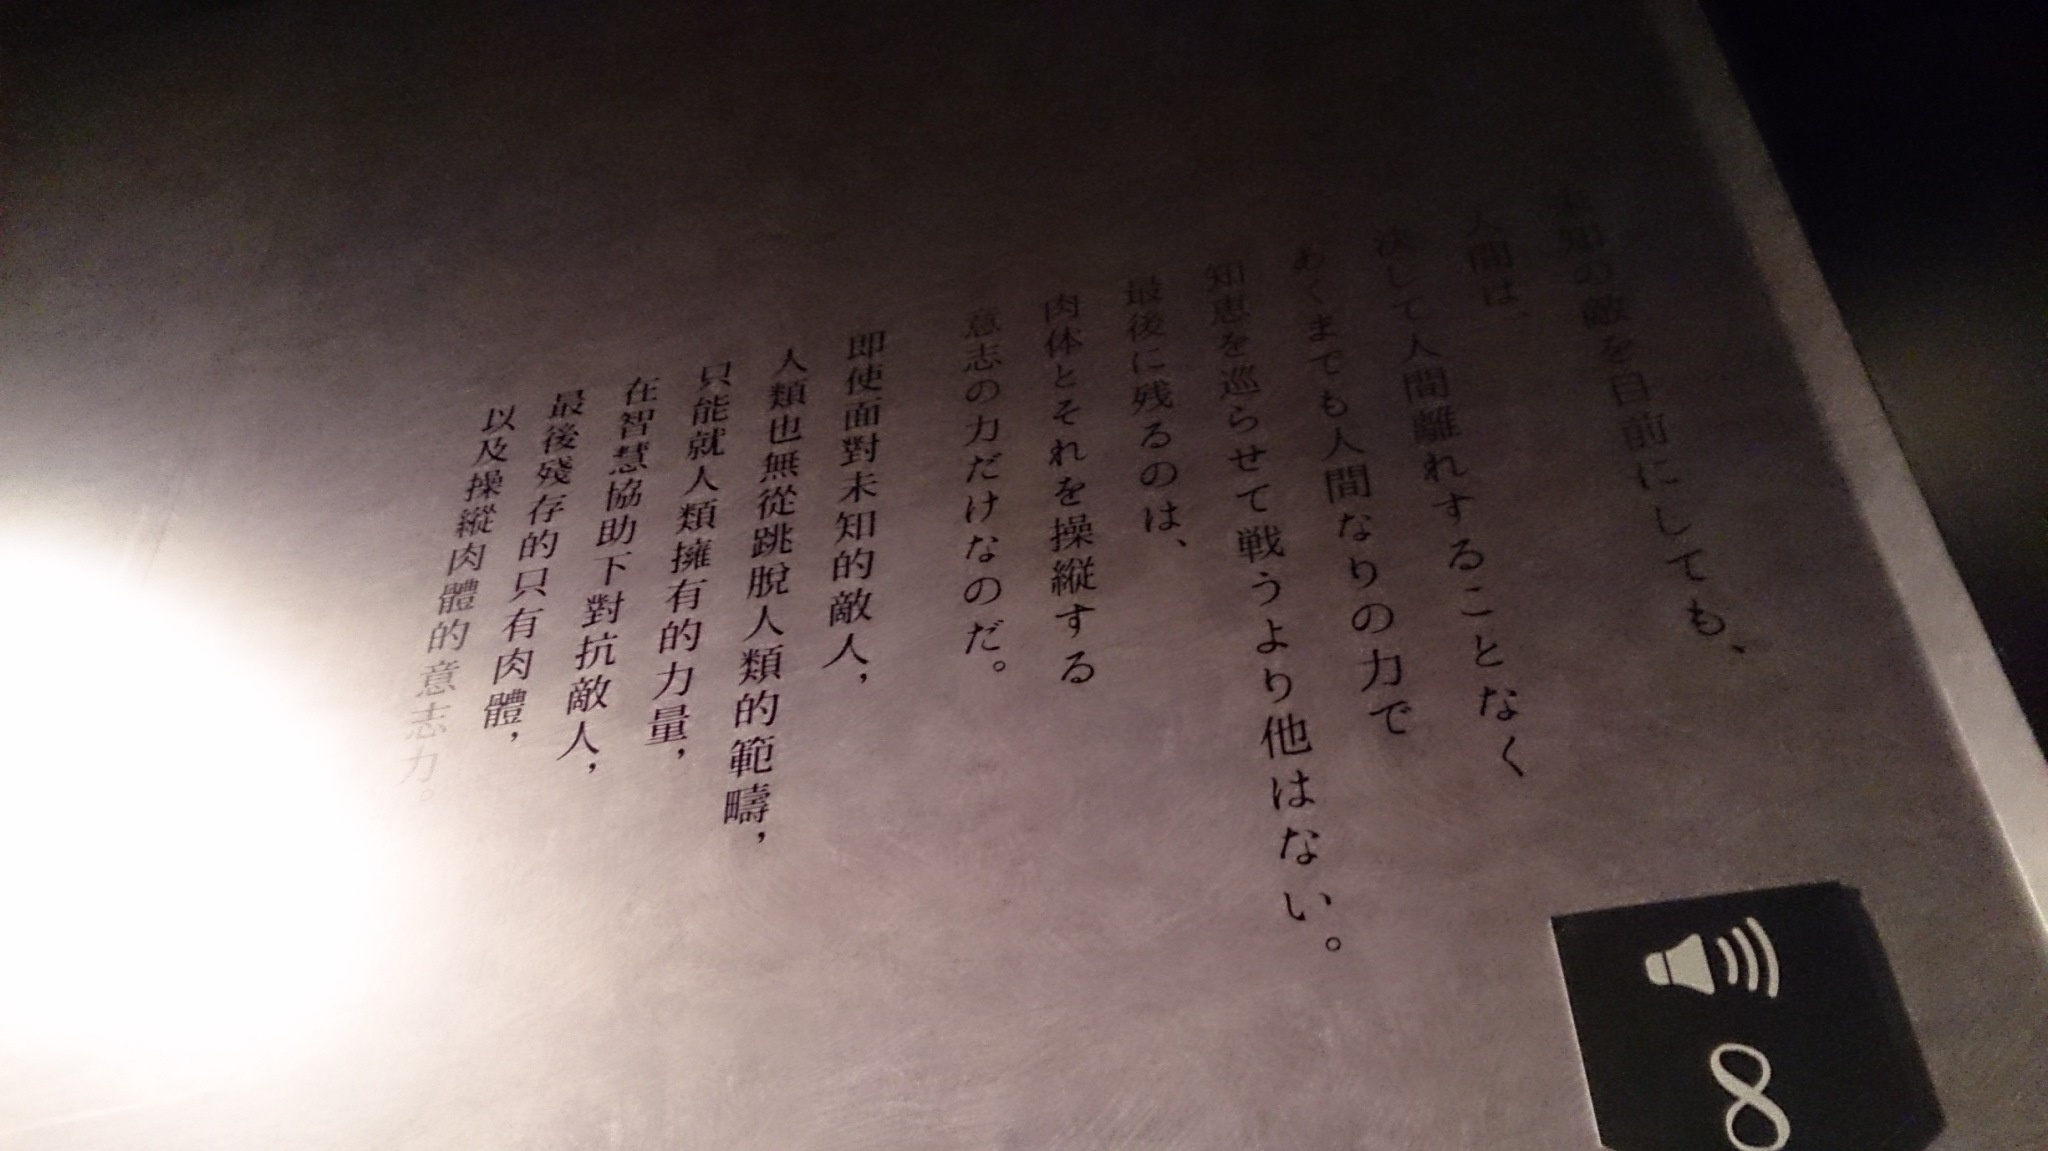 未知の敵を目前にしても、
人間は、
決して人間離れすることなく
あくまでも人間なりの力で
知恵を巡らせて戦うより他はない。
最後に残るのは、
肉体とそれを操縦する
意志の力だけなのだ。
即使面對未知的敵人，
人類也無從跳脫人類的範疇，
只能就人類擁有的力量，
在智慧協助下對抗敵人，
最後殘存的只有肉體，
以及操縱肉體的意志力。
8